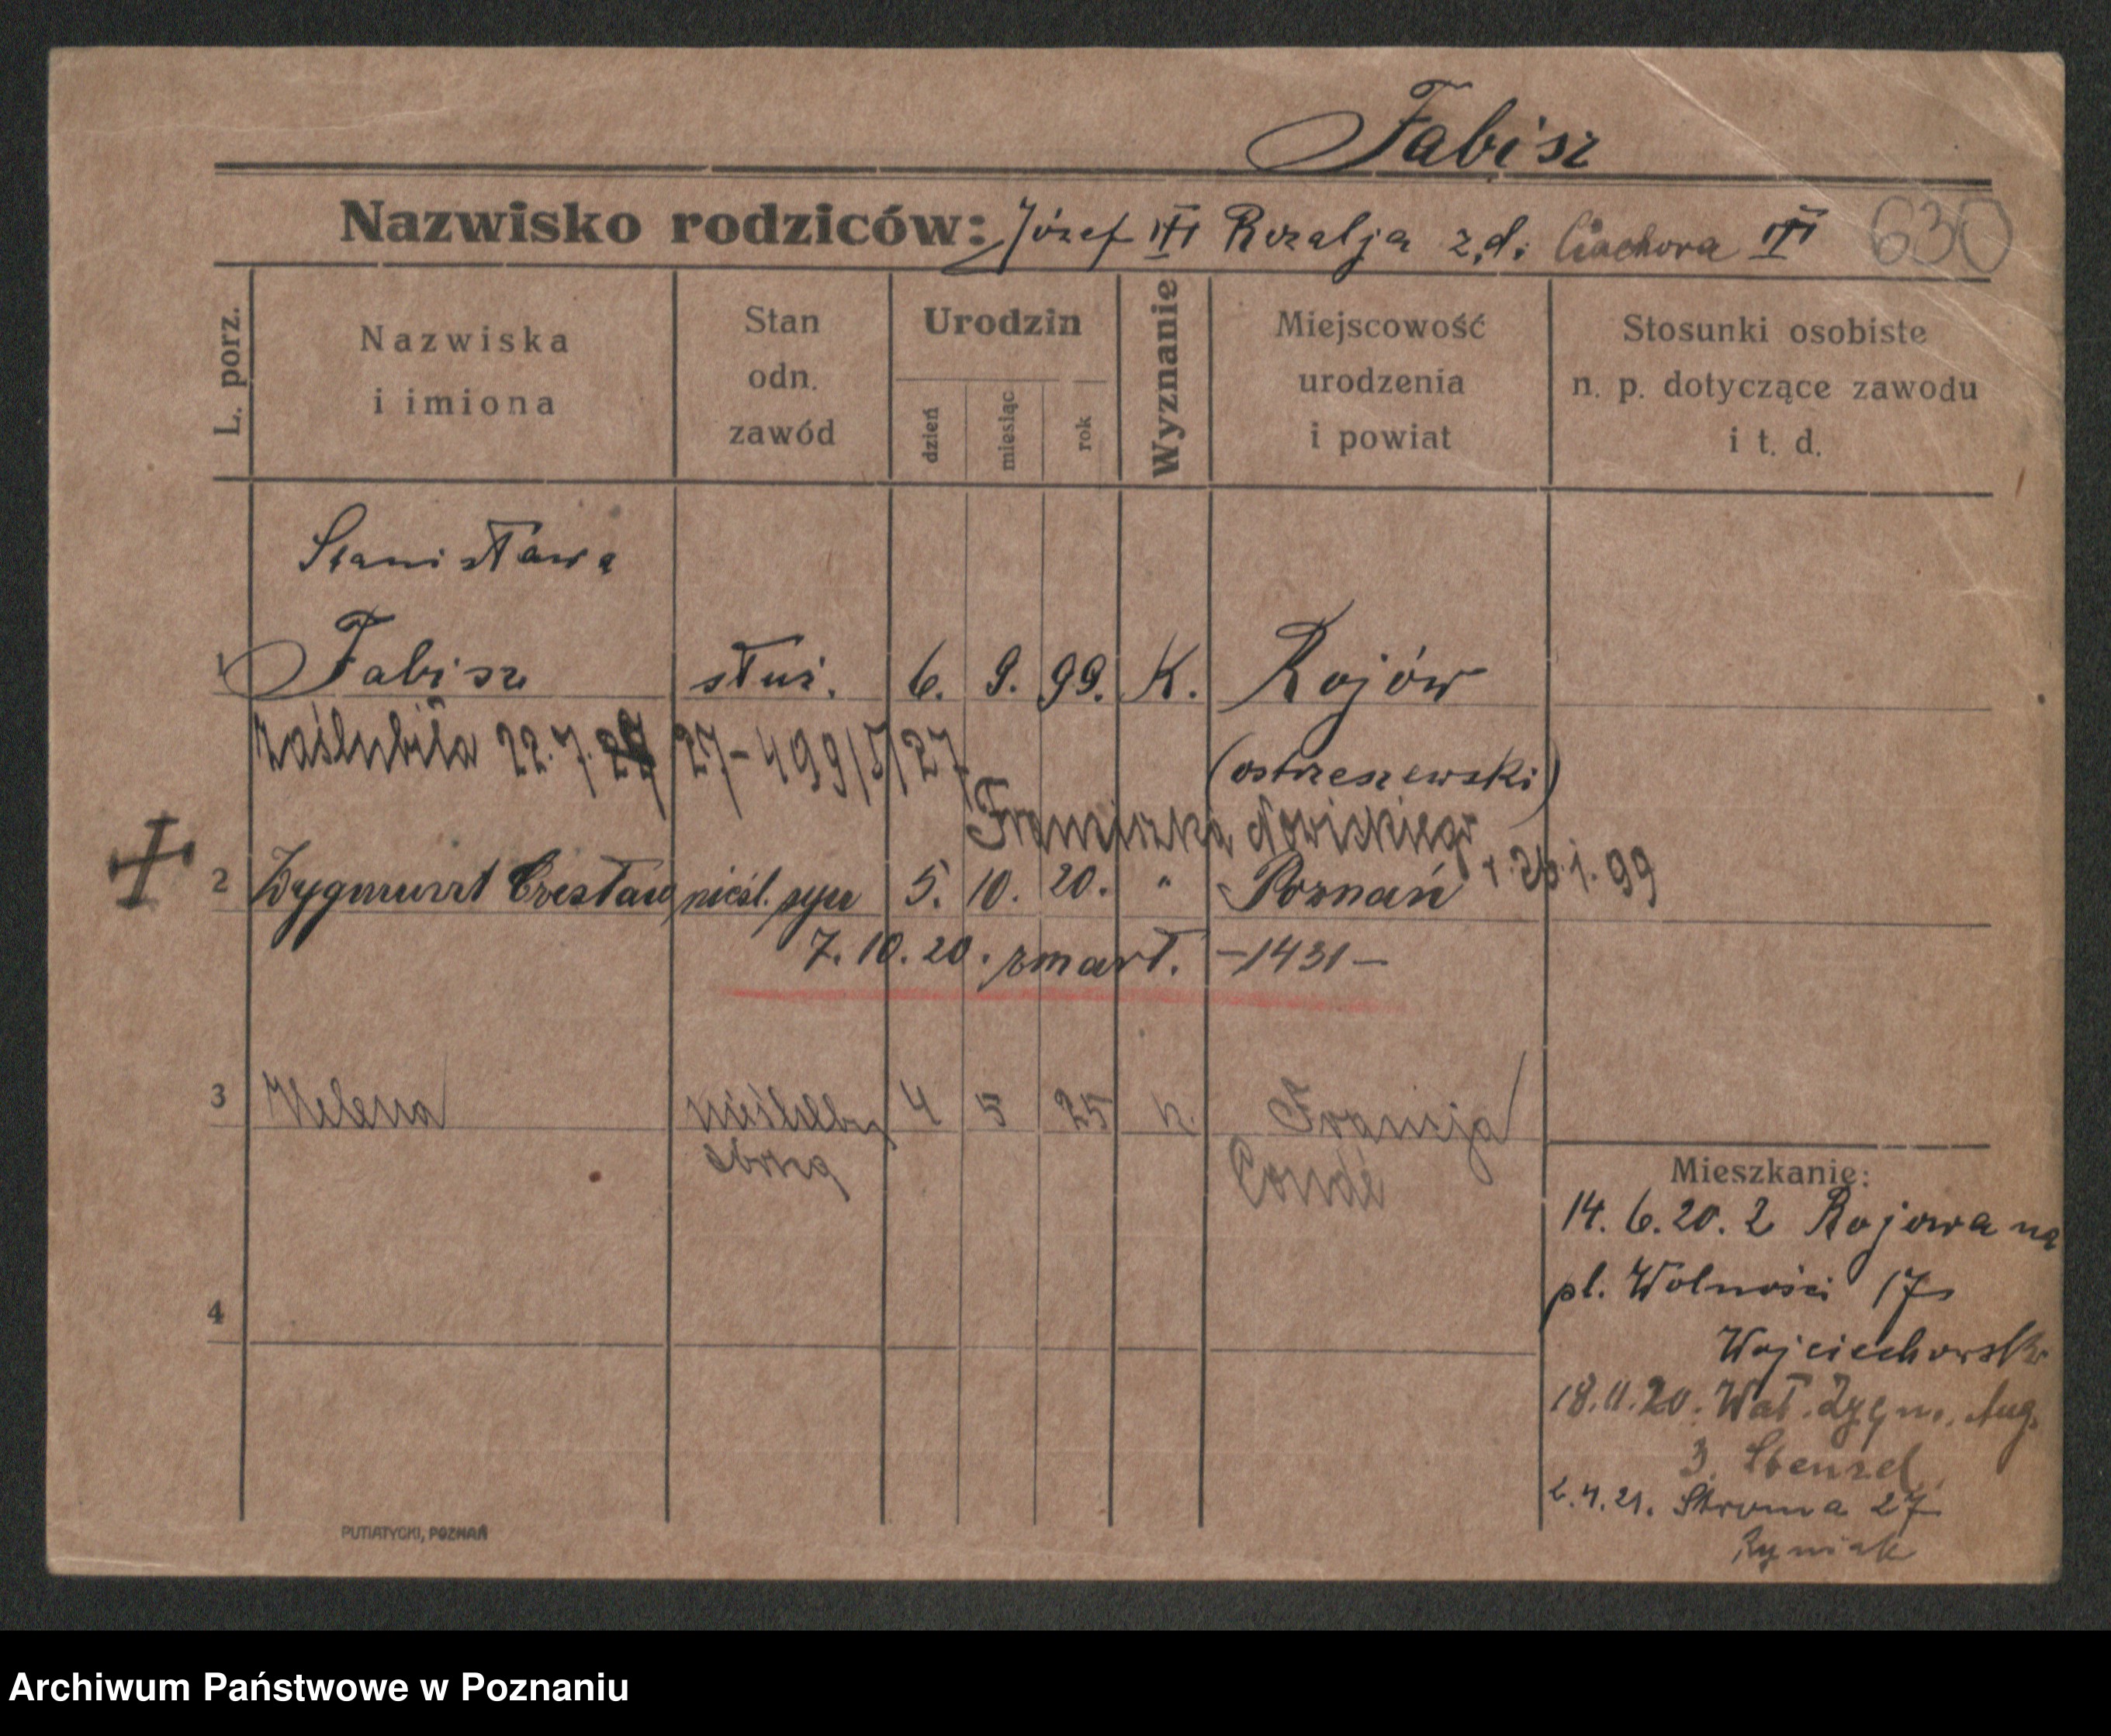 Fabisz
Nazwisko rodziców: Józef Rozalja z d. Ciachora 630
L. porz.
Nazwiska i imiona
Stan odn. zawód
Urodzin
dzień miesiąc rok
Wyznanie
Miejscowość urodzenia i powiat
Stosunki osobiste n. p. dotyczące zawodu i t. d.
Stanisława
1 Fabisz służ. 6. 9. 99. K. Rojów
zaślubiła 22.7.27 27-499/27
(ostrzeszewski)
Franciszka Nowickiego
2 Zygmunt Czesław nieśl. syn 5. 10. 20. " Poznań 99
7. 10. 20. zmarł. -1431-
3 Helena nieślubna 4 5 25 k. Francja
córka Condé
Mieszkanie:
14. 6. 20. z Rojowa na
pl. Wolności 17
4
Wojciechowski
18.11.20. Wał. Zygm. Aug.
3. Stenzel
2.4.21. Stroma 27
Ryniak
PUTIATYCKI, POZNAŃ
Archiwum Państwowe w Poznaniu